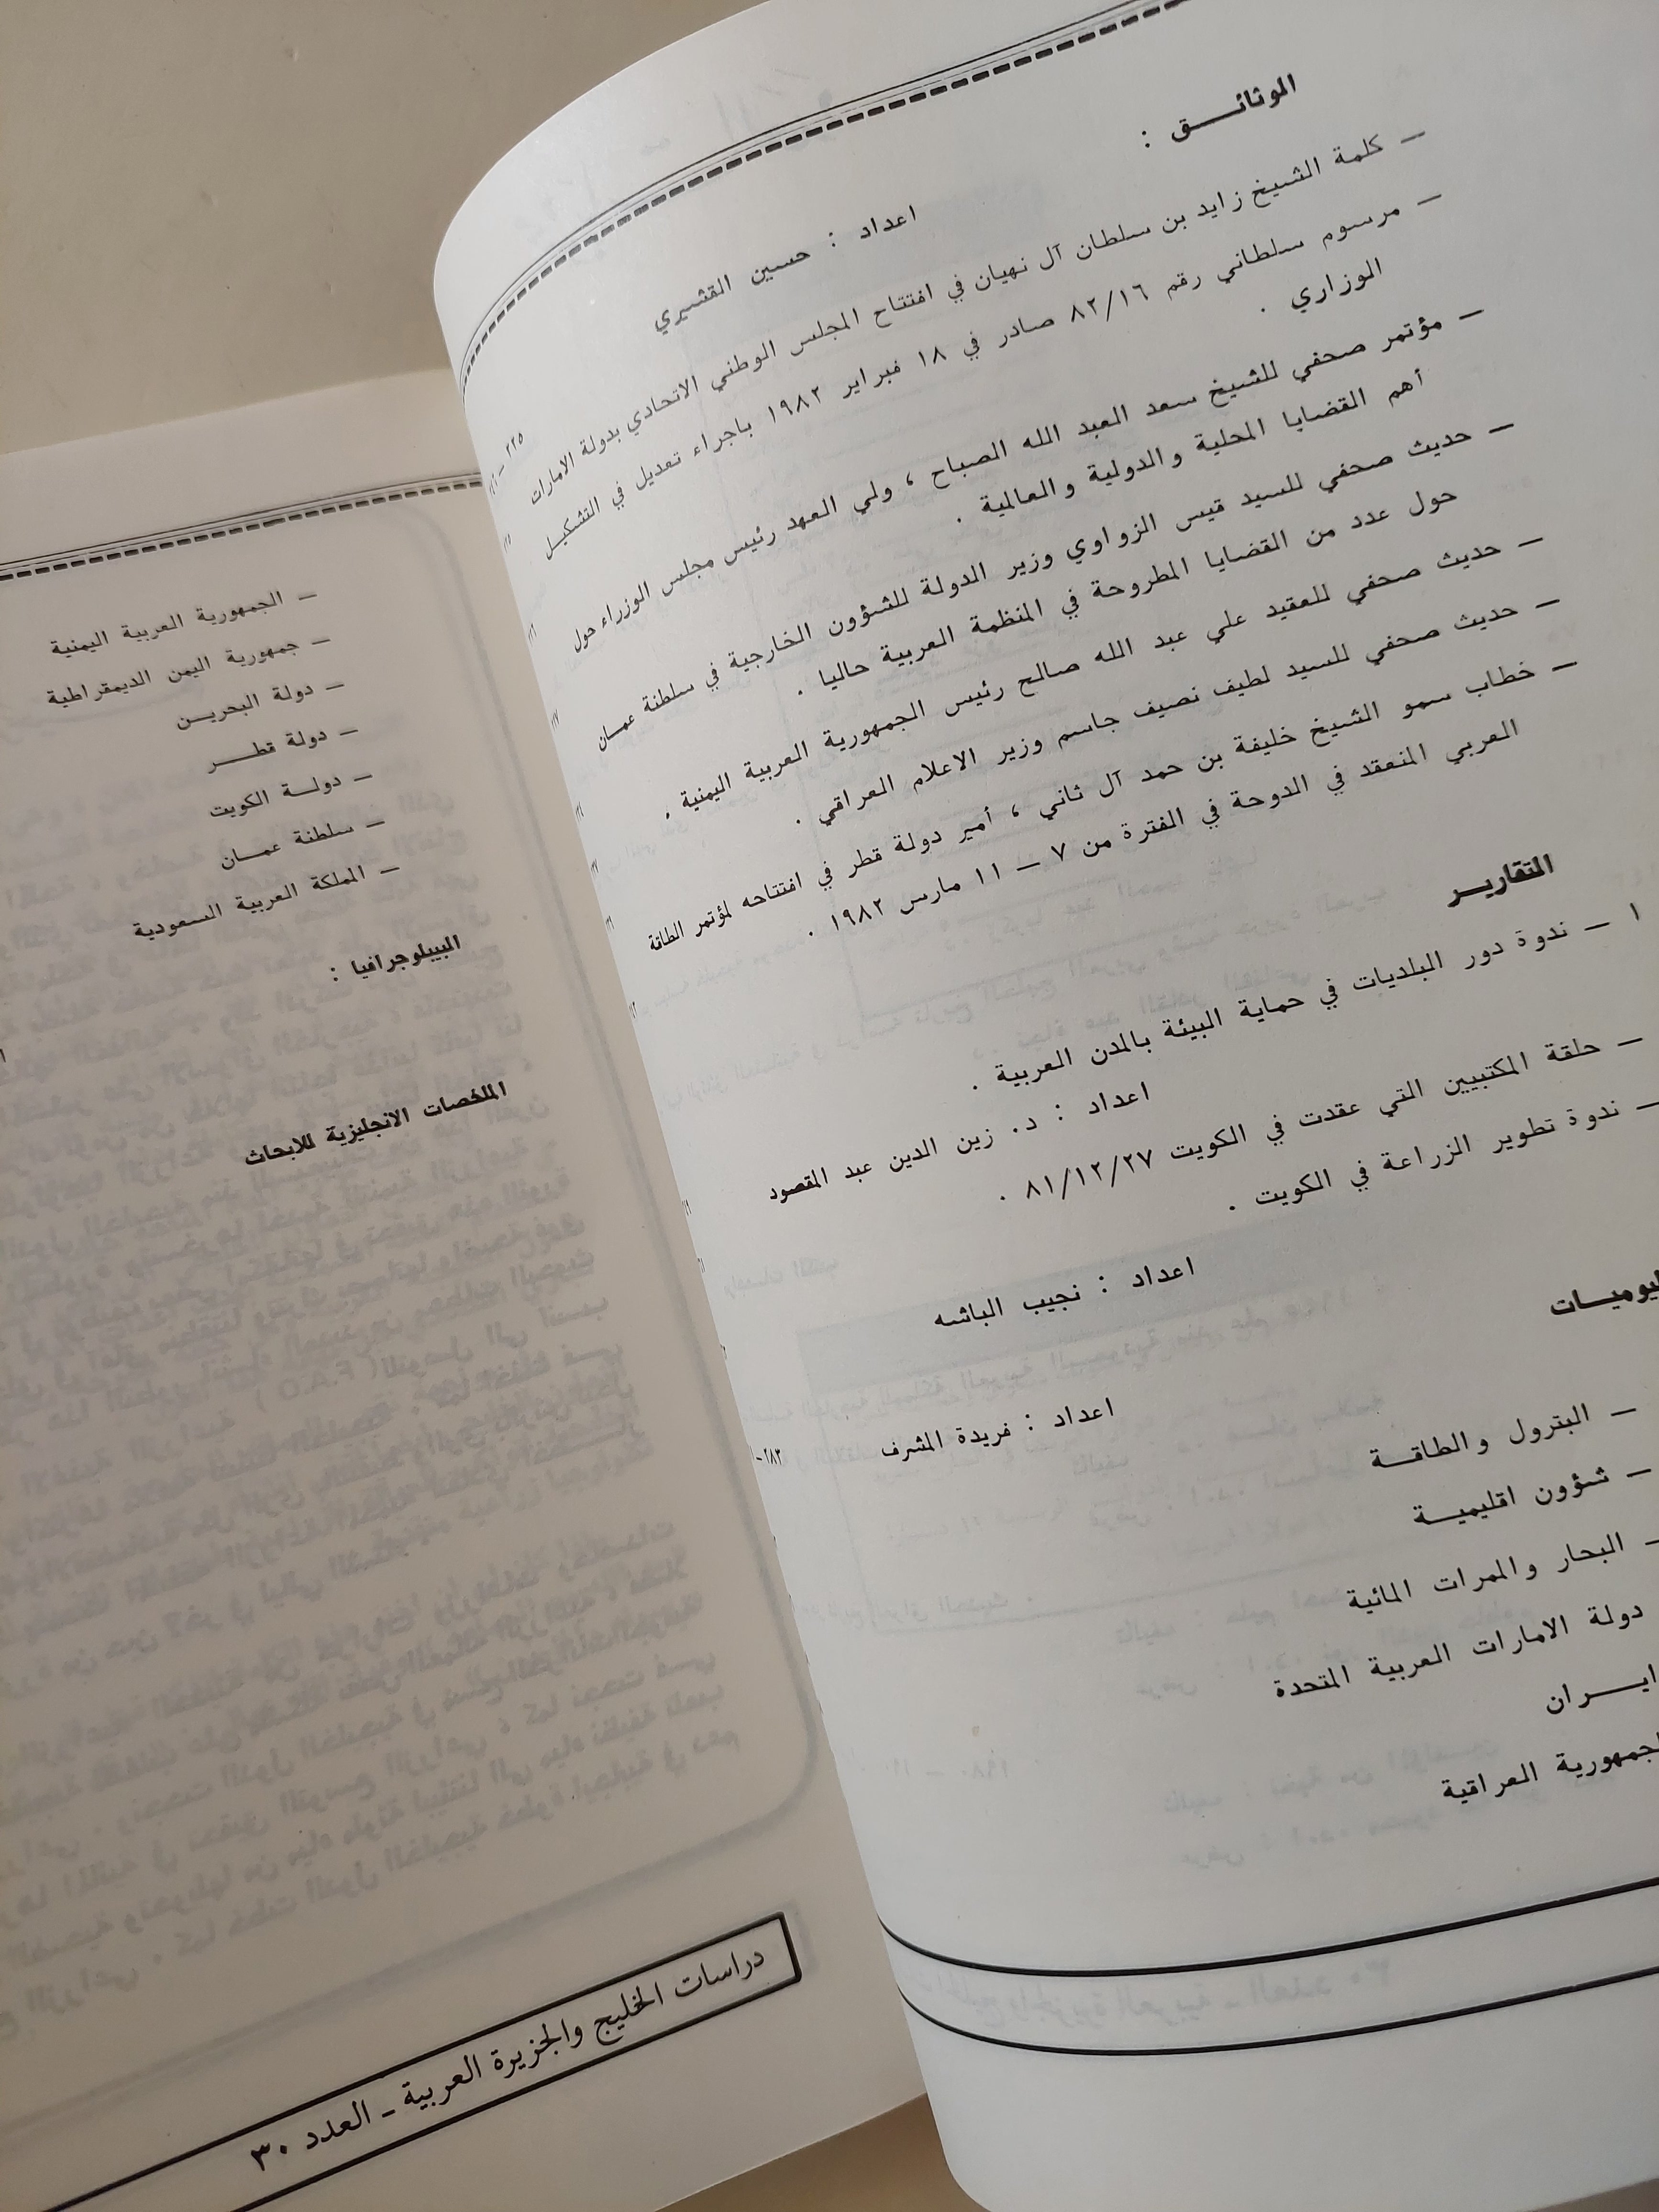 الوثائــــق :
اعداد : حسين القشيري
ــ كلمة الشيخ زايد بن سلطان آل نهيان في افتتاح المجلس الوطني الاتحادي بدولة الامارات
ــ مرسوم سلطاني رقم ٨٢/١٦ صادر في ١٨ فبراير ١٩٨٢ باجراء تعديل في التشكيل
الوزاري .
ــ مؤتمر صحفي للشيخ سعد العبد الله الصباح ، ولي العهد رئيس مجلس الوزراء حول
أهم القضايا المحلية والدولية والعالمية .
ــ حديث صحفي للسيد قيس الزواوي وزير الدولة للشؤون الخارجية في سلطنة عمان
حول عدد من القضايا المطروحة في المنظمة العربية حاليا .
ــ حديث صحفي للعقيد علي عبد الله صالح رئيس الجمهورية العربية اليمنية .
ــ حديث صحفي للسيد لطيف نصيف جاسم وزير الاعلام العراقي .
ــ خطاب سمو الشيخ خليفة بن حمد آل ثاني ، أمير دولة قطر في افتتاحه لمؤتمر الطاقة
العربي المنعقد في الدوحة في الفترة من ٧ ــ ١١ مارس ١٩٨٢ .
التقاريـر
١ ــ ندوة دور البلديات في حماية البيئة بالمدن العربية .
اعداد : د. زين الدين عبد المقصود
ــ حلقة المكتبيين التي عقدت في الكويت ٨١/١٢/٢٧ .
ــ ندوة تطوير الزراعة في الكويت .
اعداد : نجيب الباشه
ليوميـات
اعداد : فريدة المشرف
ــ البترول والطاقــة
ــ شؤون اقليميــة
ــ البحار والممرات المائية
دولة الامارات العربية المتحدة
ايـــران
لجمهورية العراقية
ــ الجمهورية العربية اليمنية
ــ جمهورية اليمن الديمقراطية
ــ دولة البحريـن
ــ دولة قطـــر
ــ دولــة الكويت
ــ سلطنة عمــان
ــ المملكة العربية السعودية
الببيلوجرافيا :
الملخصات الانجليزية للابحاث
دراسات الخليج والجزيرة العربية ـ العدد ٣٠